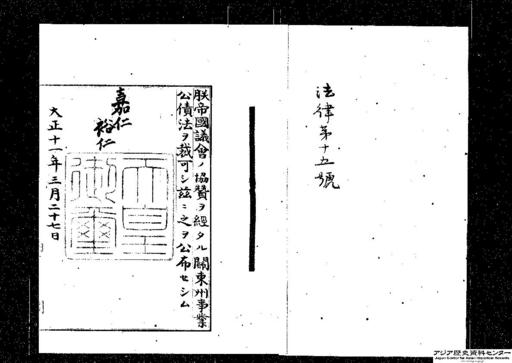 法律第十五號
朕帝國議會ノ協贊ヲ經タル關東州事業
公債法ヲ裁可シ茲ニ之ヲ公布セシム
嘉仁
裕仁
天皇
御璽
大正十一年三月二十七日
アジア歴史資料センター
Japan Center for Asian Historical Records